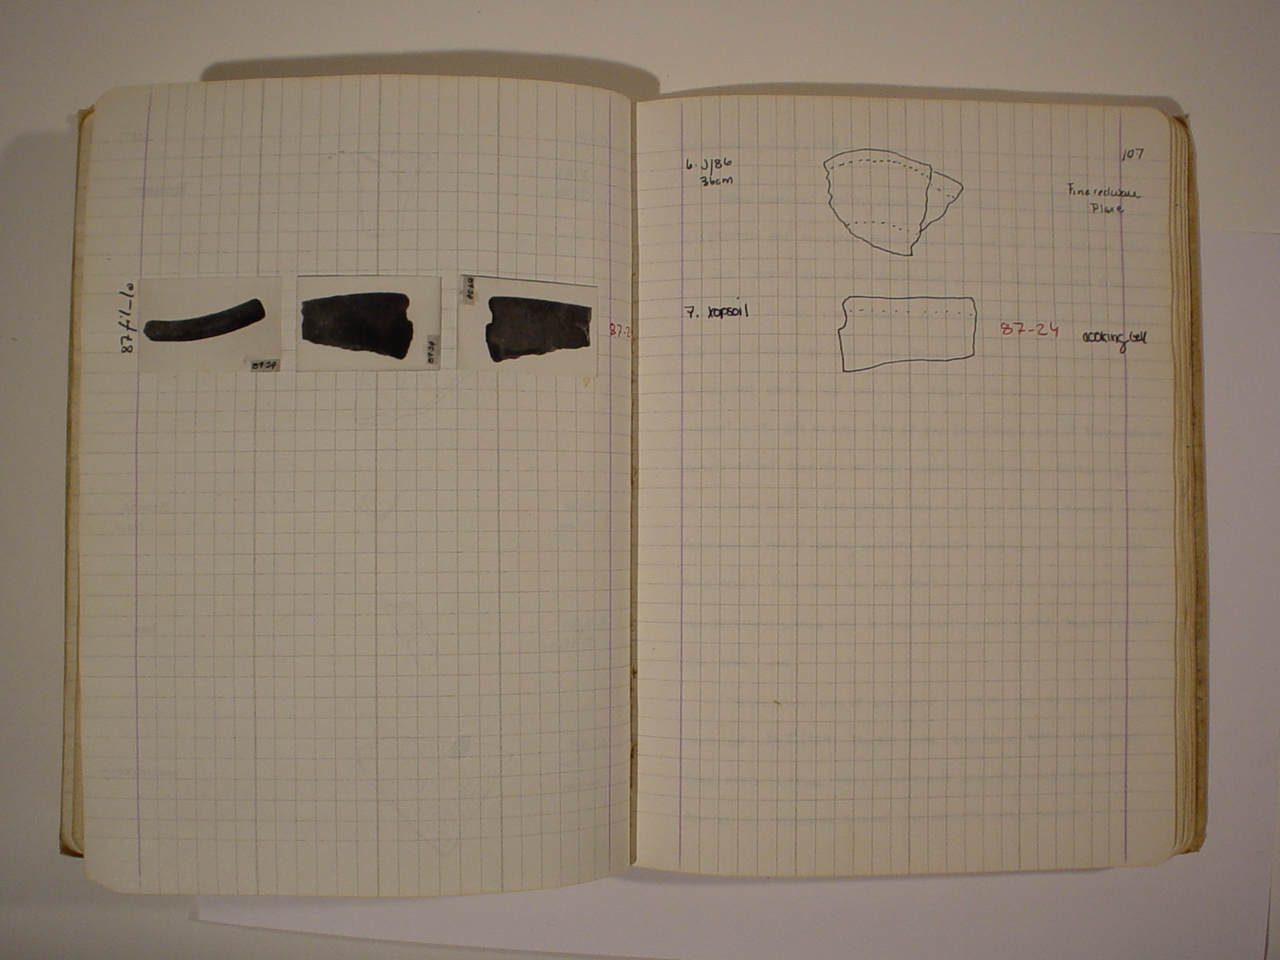 87-f.1-10
87-24
87-24
87-24
87-2
107
6. J/86
36cm
Fine redware
Plate
7. topsoil
87-24
cooking bell